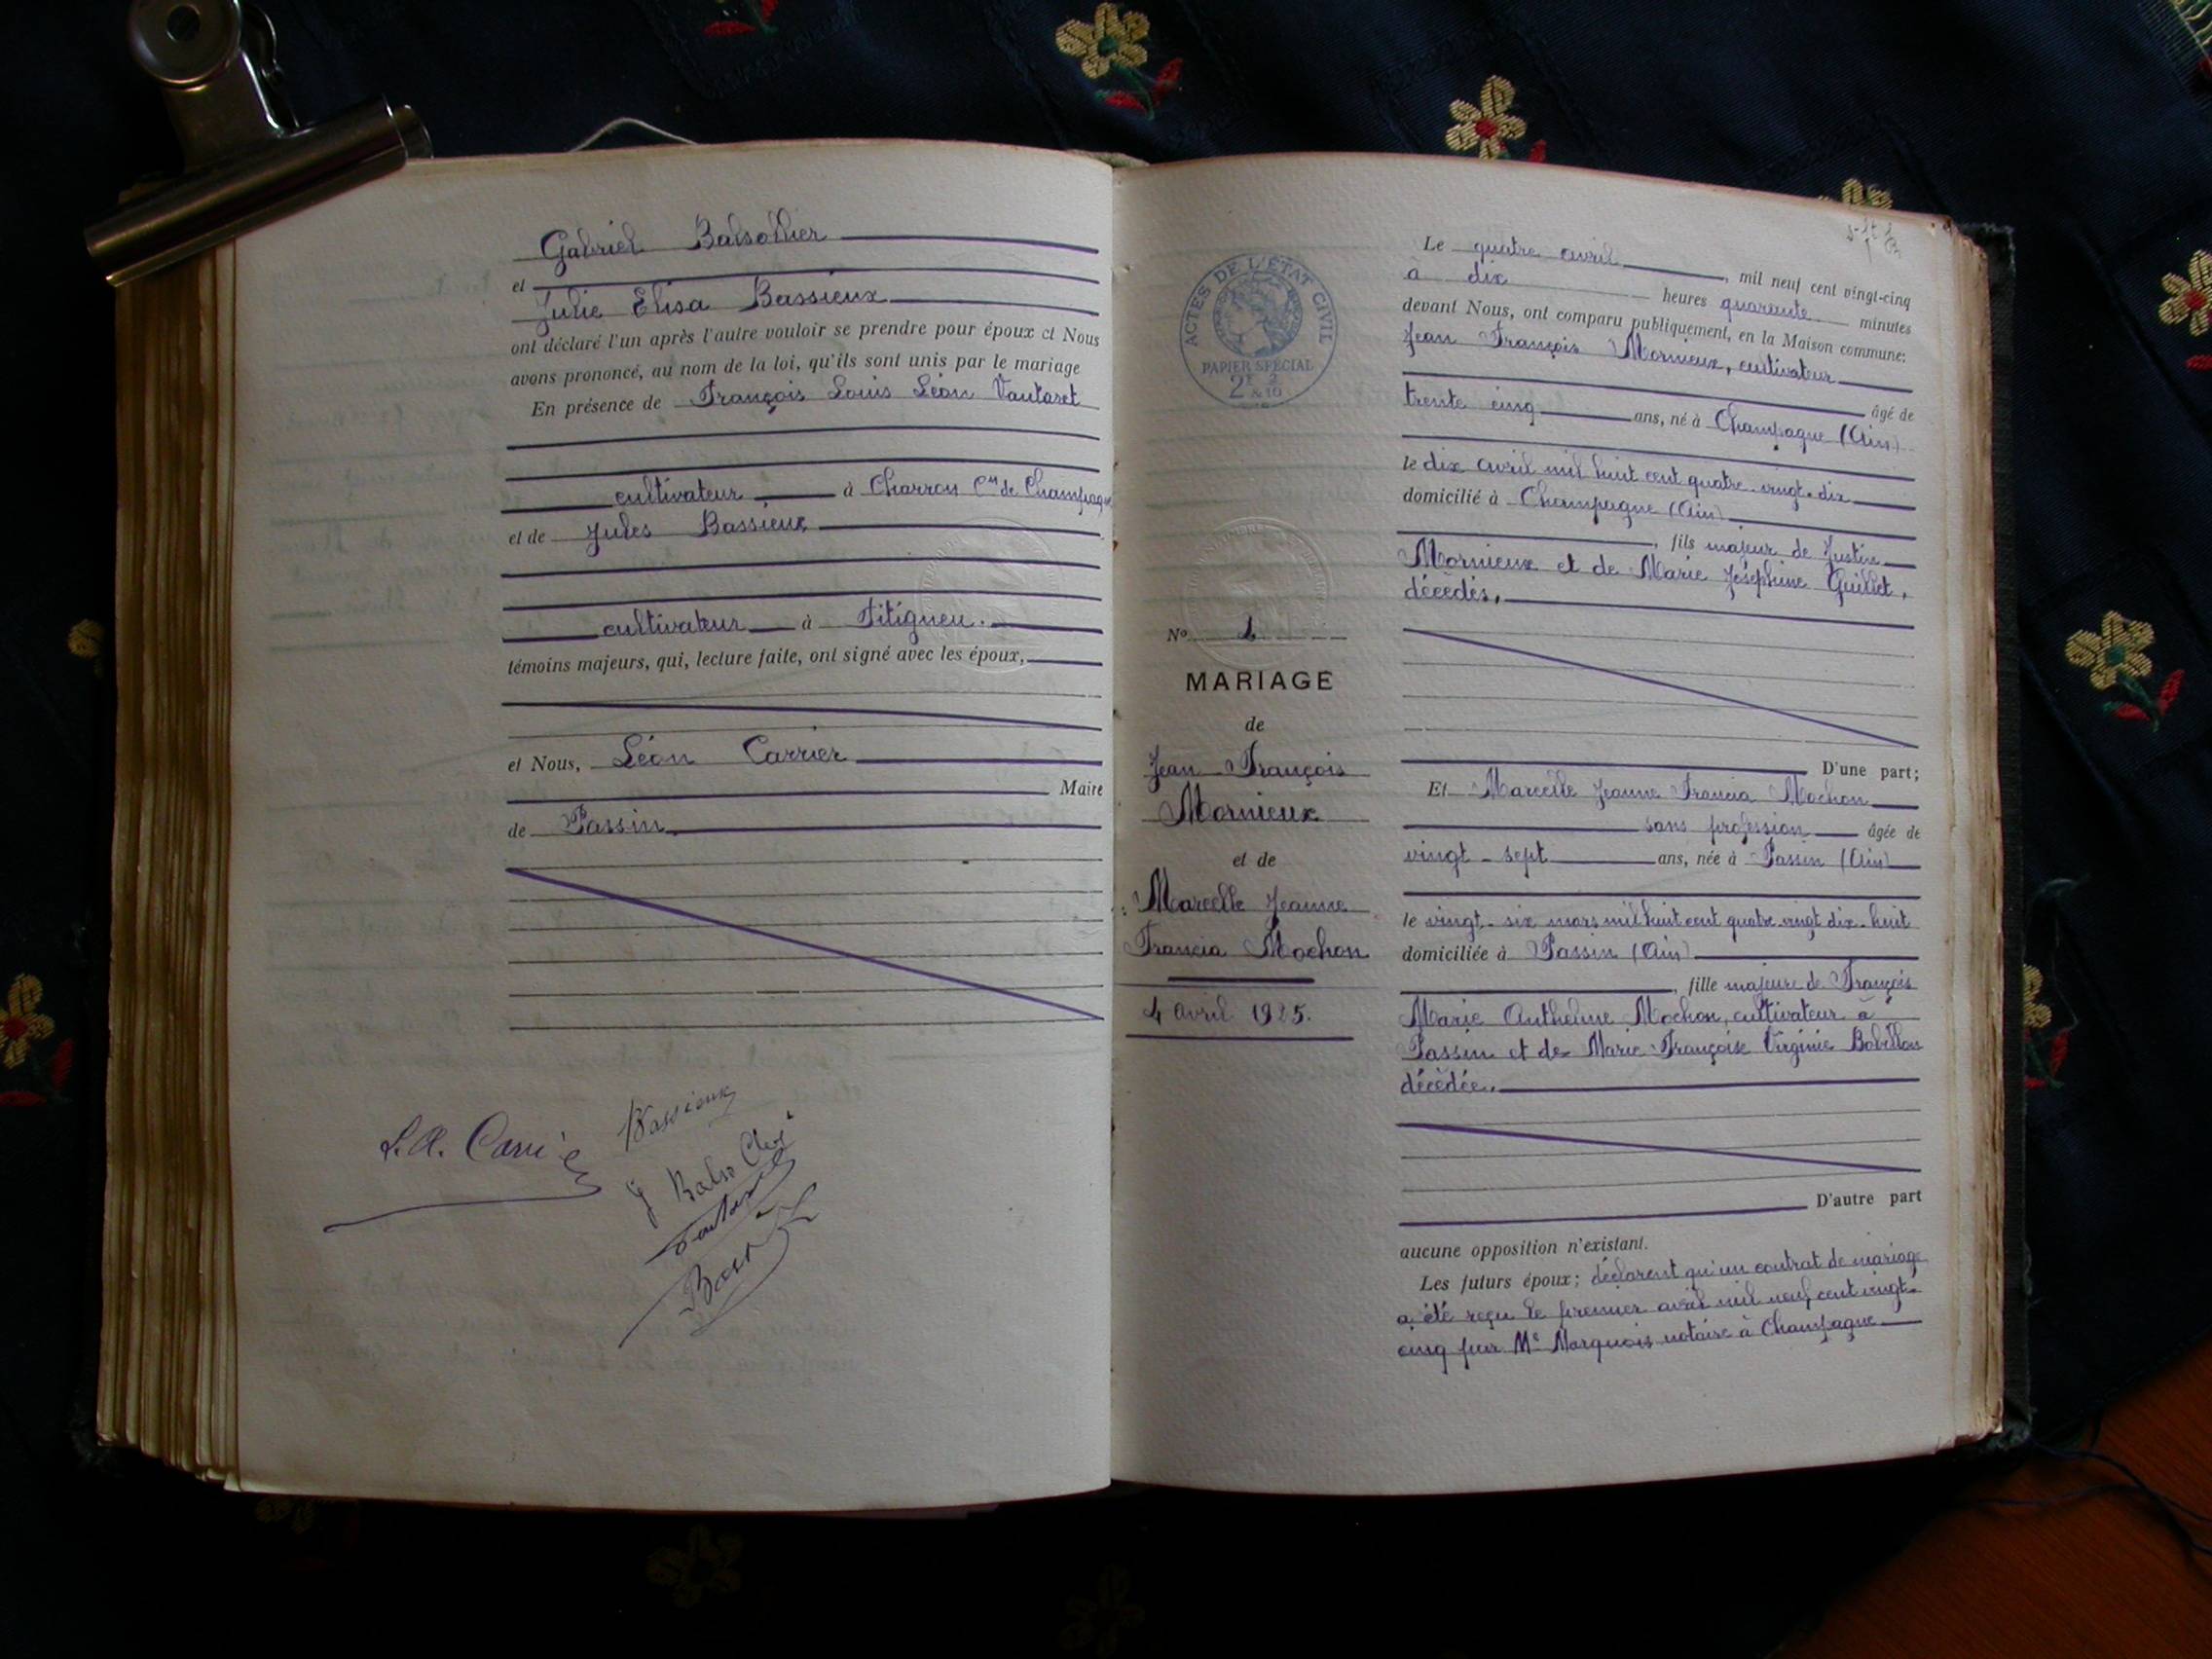 Gabriel Balsollier
et
Julie Elisa Bassieux
ont déclaré l'un après l'autre vouloir se prendre pour époux et Nous
avons prononcé, au nom de la loi, qu'ils sont unis par le mariage
En présence de François Louis Léon Vautaret
cultivateur à Charron Cne de Champagne
et de Jules Bassieux
cultivateur à Fitigneu.
témoins majeurs, qui, lecture faite, ont signé avec les époux,
et Nous, Léon Carrier
Maire
de Passin.
Bassieux
L.A. Carrier
ACTES DE L'ÉTAT CIVIL
PAPIER SPÉCIAL
No 1
MARIAGE
de
Jean François
Mornieux
et de
Marcelle Jeanne
Francia Mochon
4 Avril 1925.
Le quatre avril, mil neuf cent vingt-cinq
à dix heures quarante minutes
devant Nous, ont comparu publiquement, en la Maison commune:
Jean François Mornieux, cultivateur
âgé de
trente cinq ans, né à Champagne (Ain)
le dix avril mil huit cent quatre-vingt-dix
domicilié à Champagne (Ain)
, fils majeur de Justin
Mornieux et de Marie Joséphine Guillet,
décédés,
D'une part;
Et Marcelle Jeanne Francia Mochon
sans profession âgée de
vingt-sept ans, née à Passin (Ain)
le vingt-six mars mil huit cent quatre-vingt dix-huit
domiciliée à Passin (Ain)
, fille majeure de François
Marie Anthelme Mochon, cultivateur à
Passin et de Marie Françoise Virginie Bobillon
décédée.
D'autre part
aucune opposition n'existant.
Les futurs époux; déclarent qu'un contrat de mariage
a été reçu le premier avril mil neuf cent vingt-
cinq par Me Marquois notaire à Champagne